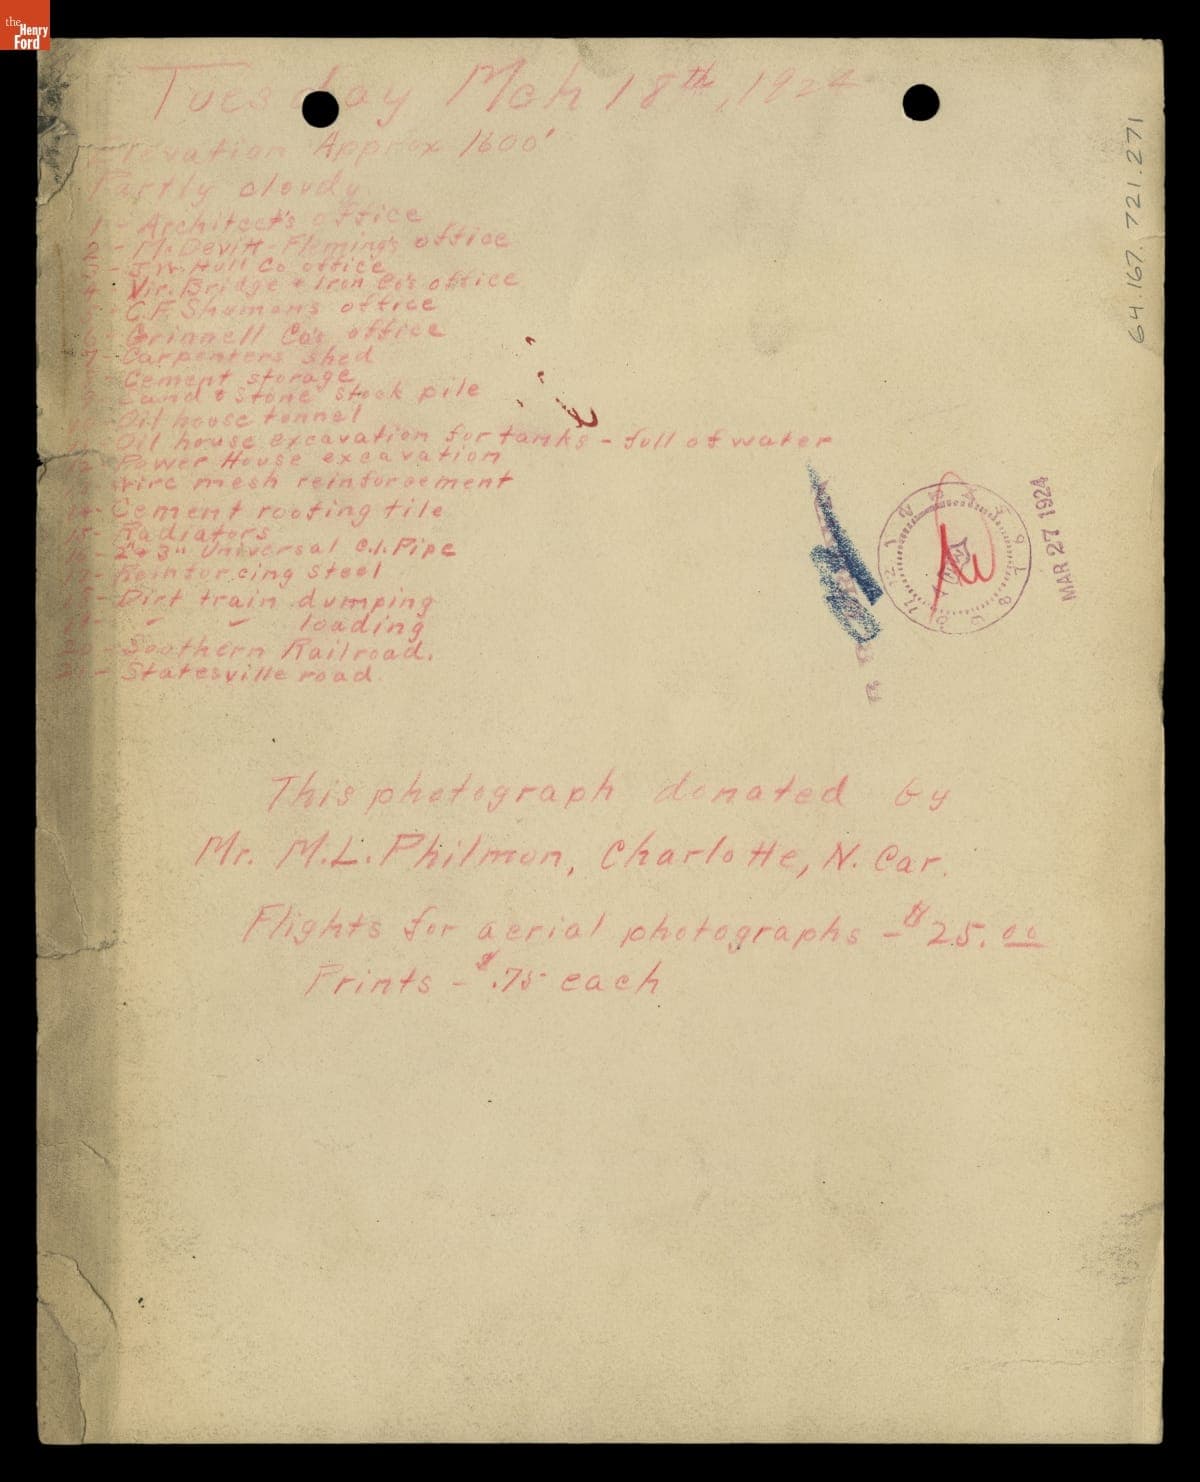 the
Henry
Ford
Tuesday Mch 18th, 1924
Elevation Approx 1600'
Partly cloudy
1 - Architect's office
2 - McDevitt-Fleming's office
3 - J.W. Hull Co office
4 - Vir. Bridge & Iron Co's office
5 - C.F. Shuman's office
6 - Grinnell Co's office
7 - Carpenters shed
8 - Cement storage
9 - Sand & stone stock pile
10 - Oil house tunnel
11 - Oil house excavation for tanks - full of water
12 - Power House excavation
13 - Wire mesh reinforcement
14 - Cement roofing tile
15 - Radiators
16 - 2" & 3" Universal C.I. Pipe
17 - Reinforcing steel
18 - Dirt train dumping
19 - " " loading
20 - Southern Railroad.
21 - Statesville road.
This photograph donated by
Mr. M.L. Philmon, Charlotte, N. Car.
Flights for aerial photographs - $25.00
Prints - $.75 each
MAR 27 1924
64.167.721.271